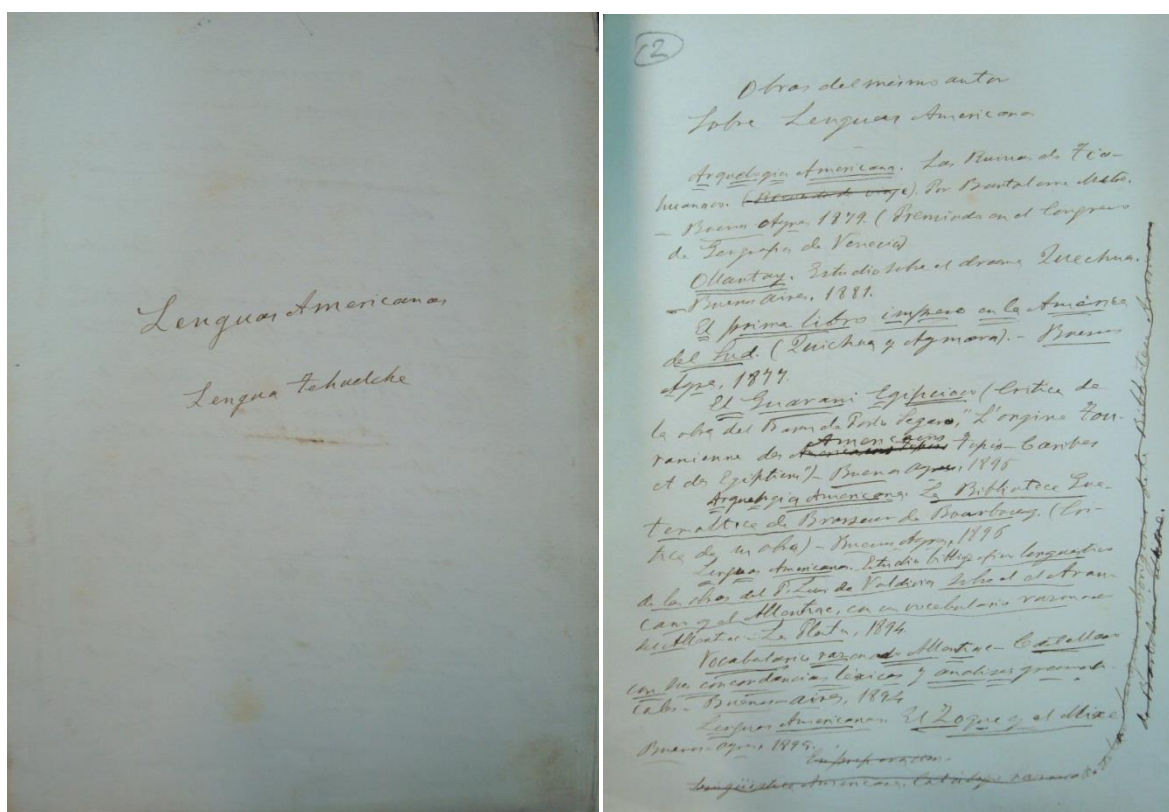 Lenguas Americanas
Lengua Tehuelche
(2)
Obras del mismo autor
Sobre Lenguas Americanas
Arqueologia Americana. Las Ruinas de Tia-
huanaco. (Recuerdo de viaje) Por Bartolomé Mitre.
- Buenos Ayres 1879. (Premiada en el Congreso
de Geografia de Venecia)
Ollantay. Estudio sobre el drama Quechua.
- Buenos Aires, 1881.
El primer libro impreso en la América
del Sud. (Quichua y Aymara). - Buenos
Ayres, 1877.
El Guarani Egipciaco (Critica de
la obra del Baron de Porto Seguro, "L'origine Tou-
ranienne des Americains Tupis-Caribes
et des Egiptiens") - Buenos Ayres, 1895
Arqueologia Americana. La Biblioteca Gua-
temaltica de Brasseur de Bourbourg. (Cri-
tica de su obra) - Buenos Ayres, 1896
Lenguas Americanas. Estudio bibliografico linguistico
de las obras del P. Luis de Valdivia sobre el Arau-
cano y el Allentiac, con un vocabulario razonado
del Allentiac - La Plata, 1894
Vocabulario razonado Allentiac - Castellano
con concordancias léxicas y analisis gramati-
cales - Buenos-Aires, 1894
Lenguas Americanas. El Zoque y el Mixe
Buenos-Ayres, 1895.
En preparacion.
Lingüistica Americana. Catalogo razonado